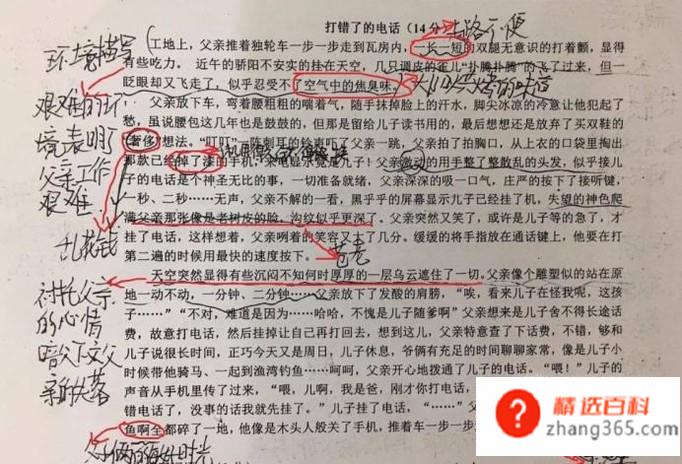 打错了的电话（14分
走路不便
工地上，父亲推着独轮车一步一步走到瓦房内，一长一短的双腿无意识的打着颤，显得
有些吃力。 近午的骄阳不安实的挂在天空，几只调皮的雀儿“扑腾扑腾”的飞了过来，但一
眨眼却又飞走了，似乎忍受不了空气中的焦臭味，
父亲放下车，弯着腰粗粗的喘着气，随手抹掉脸上的汗水，脚尖冰凉的冷意让他犯起了
愁，虽说腰包这几年也是鼓鼓的，但那是留给儿子读书用的，最后想想还是放弃了买双鞋的
奢侈想法。“叮叮”一阵刺耳的铃声吓了父亲一跳，父亲拍了拍胸口，从上衣的口袋里掏出
那款已经掉了漆的手机，来电显示是儿子！父亲激动的用手整了整散乱的头发，似乎接儿
子的电话是个神圣无比的事，一切准备就绪，父亲深深的吸一口气，庄严的按下了接听键，
一秒、二秒……无声，父亲不解的一看，黑乎乎的屏幕显示儿子已经挂了机，失望的神色爬
满父亲那张像是老树皮的脸，沟纹似乎更深了。父亲突然又笑了，或许是儿子等的急了，才
挂了电话，这样想着，父亲咧着的笑容又大了几分。缓缓的将手指放在通话键上，他要在打
第二遍的时候用最快的速度按下。
苍老
天空突然显得有些沉闷不知何时厚厚的一层乌云遮住了一切。父亲像个雕塑似的站在原
地一动不动，一分钟、二分钟……父亲放下了发酸的肩膀，“唉，看来儿子在怪我呢，这孩
子……”“不对，难道是因为……哈哈，不愧是儿子随爹啊”父亲想来是儿子舍不得长途话
费，故意打电话，然后挂掉让自己再打回去，想到这儿，父亲特意查了下话费，不错，够和
儿子说很长时间，正巧今天又是周日，儿子休息，爷俩有充足的时间聊聊家常，像是儿子小
时候带他骑马、一起到渔湾钓鱼……呵呵，父亲开心的拨通了儿子的电话。“喂！”儿子的
声音从手机里传了过来，“喂，儿啊，我是爸，刚才你打电话，
错电话了，没事的话我就先挂了。”儿子挂了电话，“……”父
鱼啊全都碎了一地，他像是木头人般关了手机，推着车一步一步
环境描写
艰难的环
境表明了
父亲工作
艰难
乱花钱
衬托父亲
的心情
暗示下文父
亲的失落
父俩的美好时光
精选百科
zhang365.com